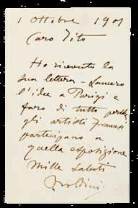 1 ottobre 1901
Caro Vito
Ho ricevuto la
sua lettera - Lancero
l'idea a Parigi e
faro di tutto perchè
gli artisti francesi
partecipano a
quella esposizione
Mille saluti
Boldini